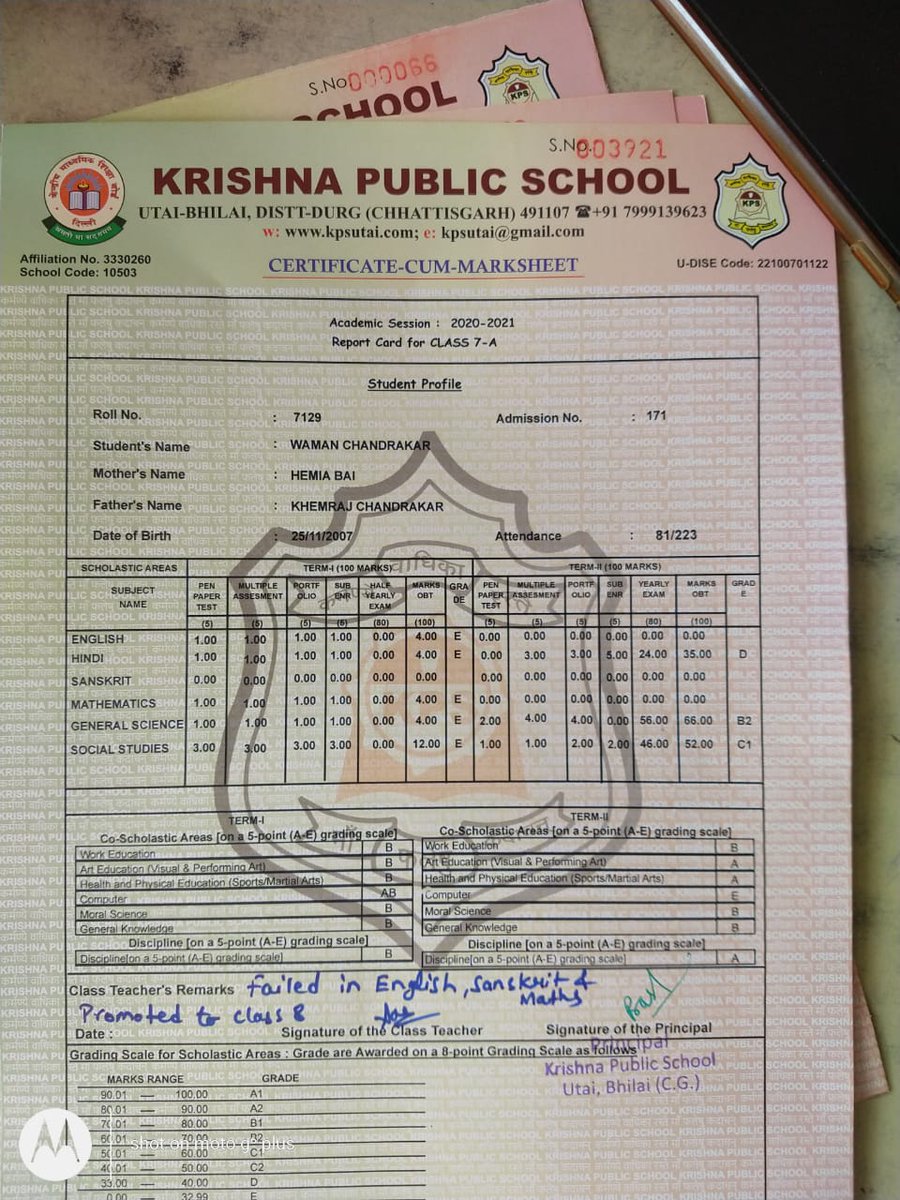 S.No.000066
SCHOOL
KPS
S.No.003921
केन्द्रीय माध्यमिक शिक्षा बोर्ड
दिल्ली
KRISHNA PUBLIC SCHOOL
KPS
UTAI-BHILAI, DISTT-DURG (CHHATTISGARH) 491107 ☎+91 7999139623
w: www.kpsutai.com; e: kpsutai@gmail.com
Affiliation No. 3330260
School Code: 10503
CERTIFICATE-CUM-MARKSHEET
U-DISE Code: 22100701122
Academic Session : 2020-2021
Report Card for CLASS 7-A
Student Profile
Roll No. : 7129 Admission No. : 171
Student's Name : WAMAN CHANDRAKAR
Mother's Name : HEMIA BAI
Father's Name : KHEMRAJ CHANDRAKAR
Date of Birth : 25/11/2007 Attendance : 81/223
SCHOLASTIC AREAS TERM-I (100 MARKS) TERM-II (100 MARKS)
SUBJECT NAME PEN PAPER TEST MULTIPLE ASSESMENT PORTF OLIO SUB ENR HALF YEARLY EXAM MARKS OBT GRA DE PEN PAPER TEST MULTIPLE ASSESMENT PORTF OLIO SUB ENR YEARLY EXAM MARKS OBT GRAD E
(5) (5) (5) (5) (80) (100) (5) (5) (5) (5) (80) (100)
ENGLISH 1.00 1.00 1.00 1.00 0.00 4.00 E 0.00 0.00 0.00 0.00 0.00 0.00
HINDI 1.00 1.00 1.00 1.00 0.00 4.00 E 0.00 3.00 3.00 5.00 24.00 35.00 D
SANSKRIT 0.00 0.00 0.00 0.00 0.00 0.00 0.00 0.00 0.00 0.00 0.00 0.00
MATHEMATICS 1.00 1.00 1.00 1.00 0.00 4.00 E 0.00 0.00 0.00 0.00 0.00 0.00
GENERAL SCIENCE 1.00 1.00 1.00 1.00 0.00 4.00 E 2.00 4.00 4.00 0.00 56.00 66.00 B2
SOCIAL STUDIES 3.00 3.00 3.00 3.00 0.00 12.00 E 1.00 1.00 2.00 2.00 46.00 52.00 C1
TERM-I
Co-Scholastic Areas [on a 5-point (A-E) grading scale]
Work Education B
Art Education (Visual & Performing Art) B
Health and Physical Education (Sports/Martial Arts) B
Computer AB
Moral Science B
General Knowledge B
Discipline [on a 5-point (A-E) grading scale]
Discipline[on a 5-point (A-E) grading scale] B
TERM-II
Co-Scholastic Areas [on a 5-point (A-E) grading scale]
Work Education B
Art Education (Visual & Performing Art) A
Health and Physical Education (Sports/Martial Arts) A
Computer E
Moral Science B
General Knowledge B
Discipline [on a 5-point (A-E) grading scale]
Discipline[on a 5-point (A-E) grading scale] A
Class Teacher's Remarks Failed in English, Sanskrit &
Maths
Promoted to class 8
Date : Signature of the Class Teacher Signature of the Principal
Principal
Krishna Public School
Utai, Bhilai (C.G.)
Grading Scale for Scholastic Areas : Grade are Awarded on a 8-point Grading Scale as follows
MARKS RANGE GRADE
90.01 — 100.00 A1
80.01 — 90.00 A2
80.00 B1
60.00 C1
50.00 C2
33.00 — 40.00 D
0.00 — 32.99 E
shot on moto g⁵ plus